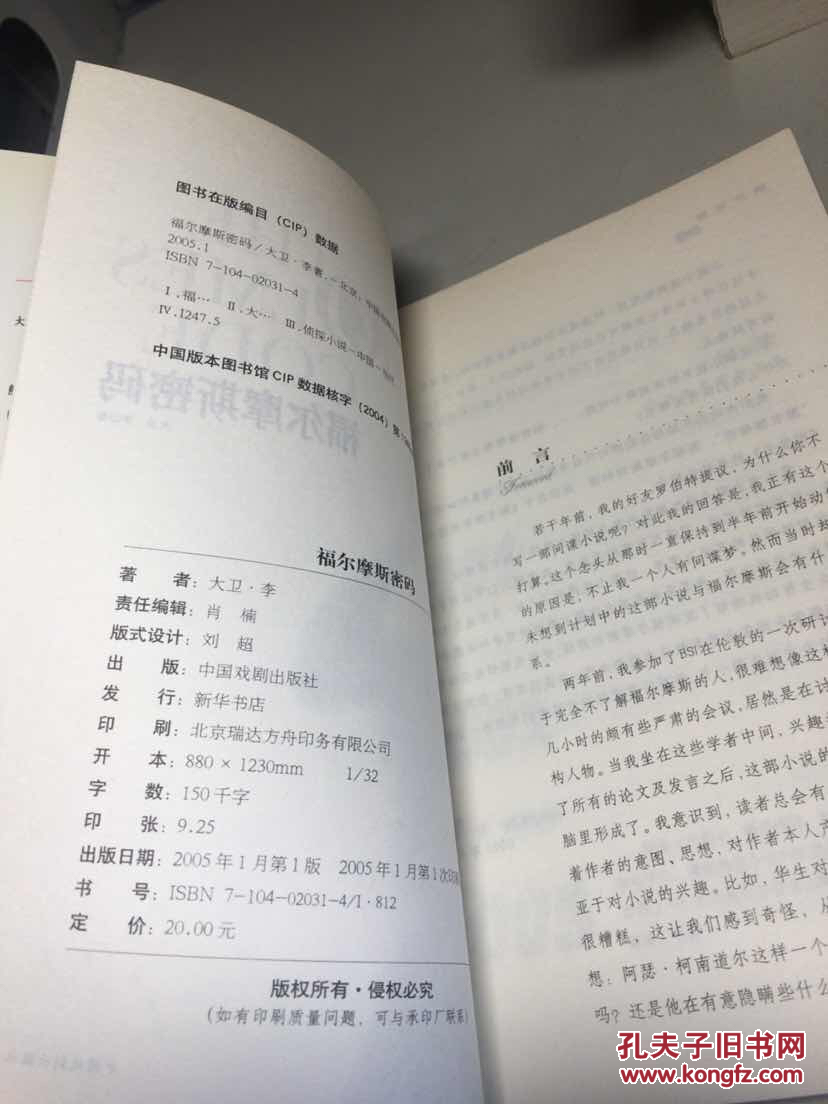 图书在版编目（CIP）数据
福尔摩斯密码／大卫·李著．－北京：中国戏剧出版
2005.1
ISBN 7-104-02031-4
Ⅰ.福… Ⅱ.大… Ⅲ.侦探小说－中国－
Ⅳ.I247.5
中国版本图书馆CIP数据核字（2004）第
福尔摩斯密码
著 者：大卫·李
责任编辑：肖 楠
版式设计：刘 超
出 版：中国戏剧出版社
发 行：新华书店
印 刷：北京瑞达方舟印务有限公司
开 本：880 × 1230mm 1/32
字 数：150千字
印 张：9.25
出版日期：2005年1月第1版 2005年1月第1次印
书 号：ISBN 7-104-02031-4/I·812
定 价：20.00元
版权所有·侵权必究
（如有印刷质量问题，可与承印厂联系）
前 言
Foreword
若干年前，我的好友罗伯特提议，为什么你不
写一部间谍小说呢？对此我的回答是，我正有这个
打算。这个念头从那时一直保持到半年前开始动
的原因是，不止我一个人有间谍梦。然而当时却
未想到计划中的这部小说与福尔摩斯会有什
系。
两年前，我参加了BSI在伦敦的一次研讨
于完全不了解福尔摩斯的人，很难想像这种
几小时的颇有些严肃的会议，居然是在讨
构人物。当我坐在这些学者中间，兴趣
了所有的论文及发言之后，这部小说的
脑里形成了。我意识到，读者总会有
着作者的意图、思想，对作者本人产
亚于对小说的兴趣。比如，华生对
很糟糕，这让我们感到奇怪，从
想：阿瑟·柯南道尔这样一个
吗？还是他在有意隐瞒些什么
福尔摩斯密码
孔夫子旧书网
www.kongfz.com